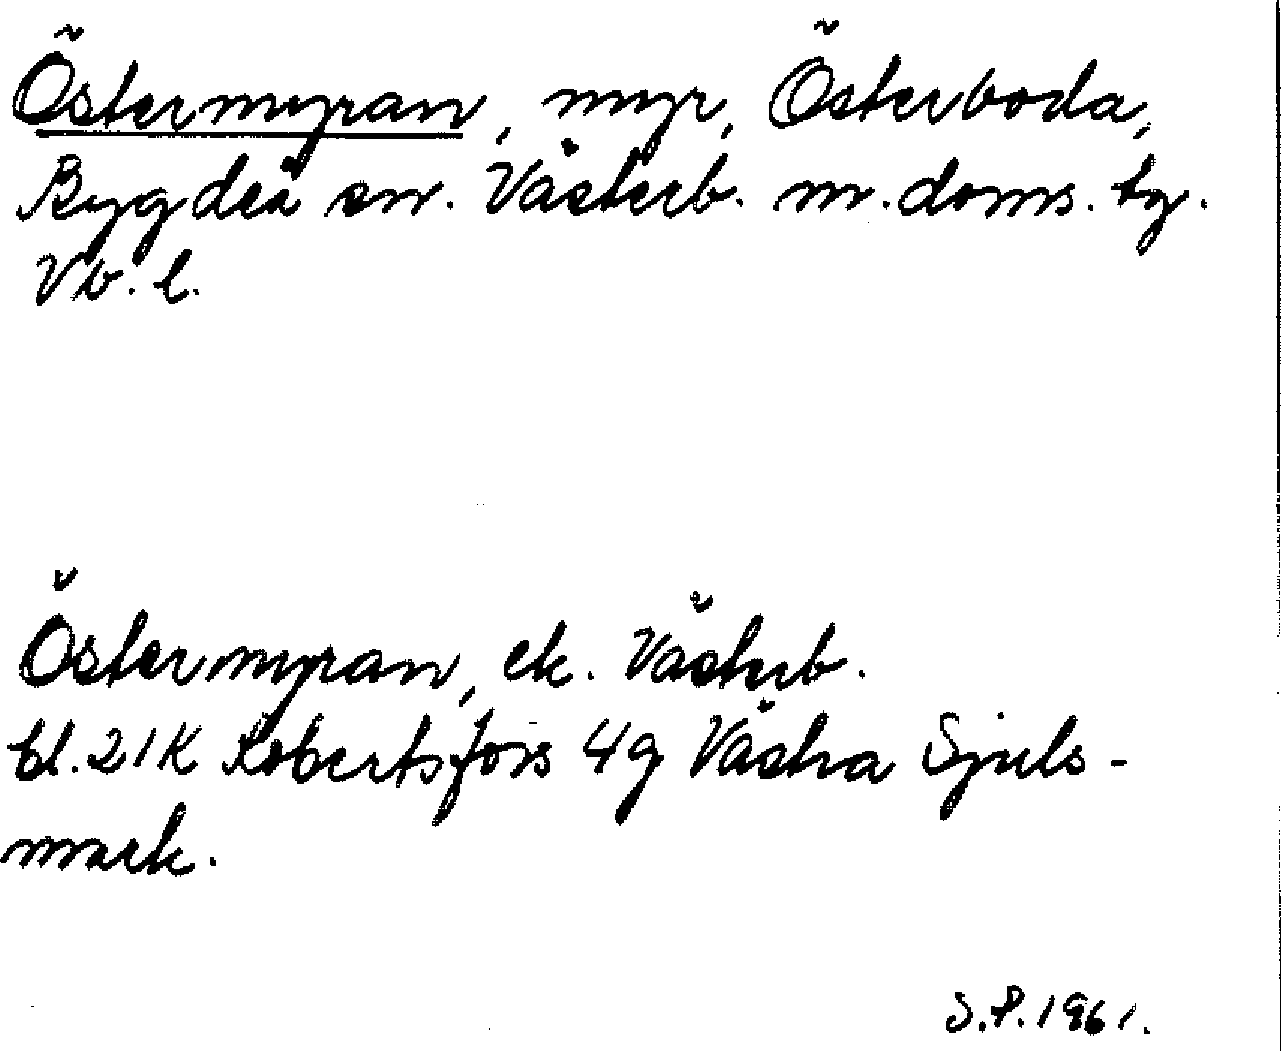 Östermyran, myr, Österboda,
Bygdeå sn. Västerb. m. doms. tg.
Vb. l.
Östermyran, ek. Västerb.
bl. 21K Robertsfors 4g Västra Sjuls-
mark.
S.P. 1961.